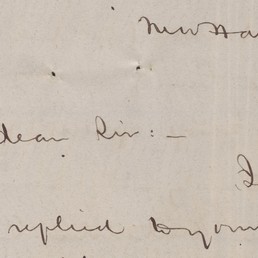 New Ha
dear Sir:—
I
replied to your